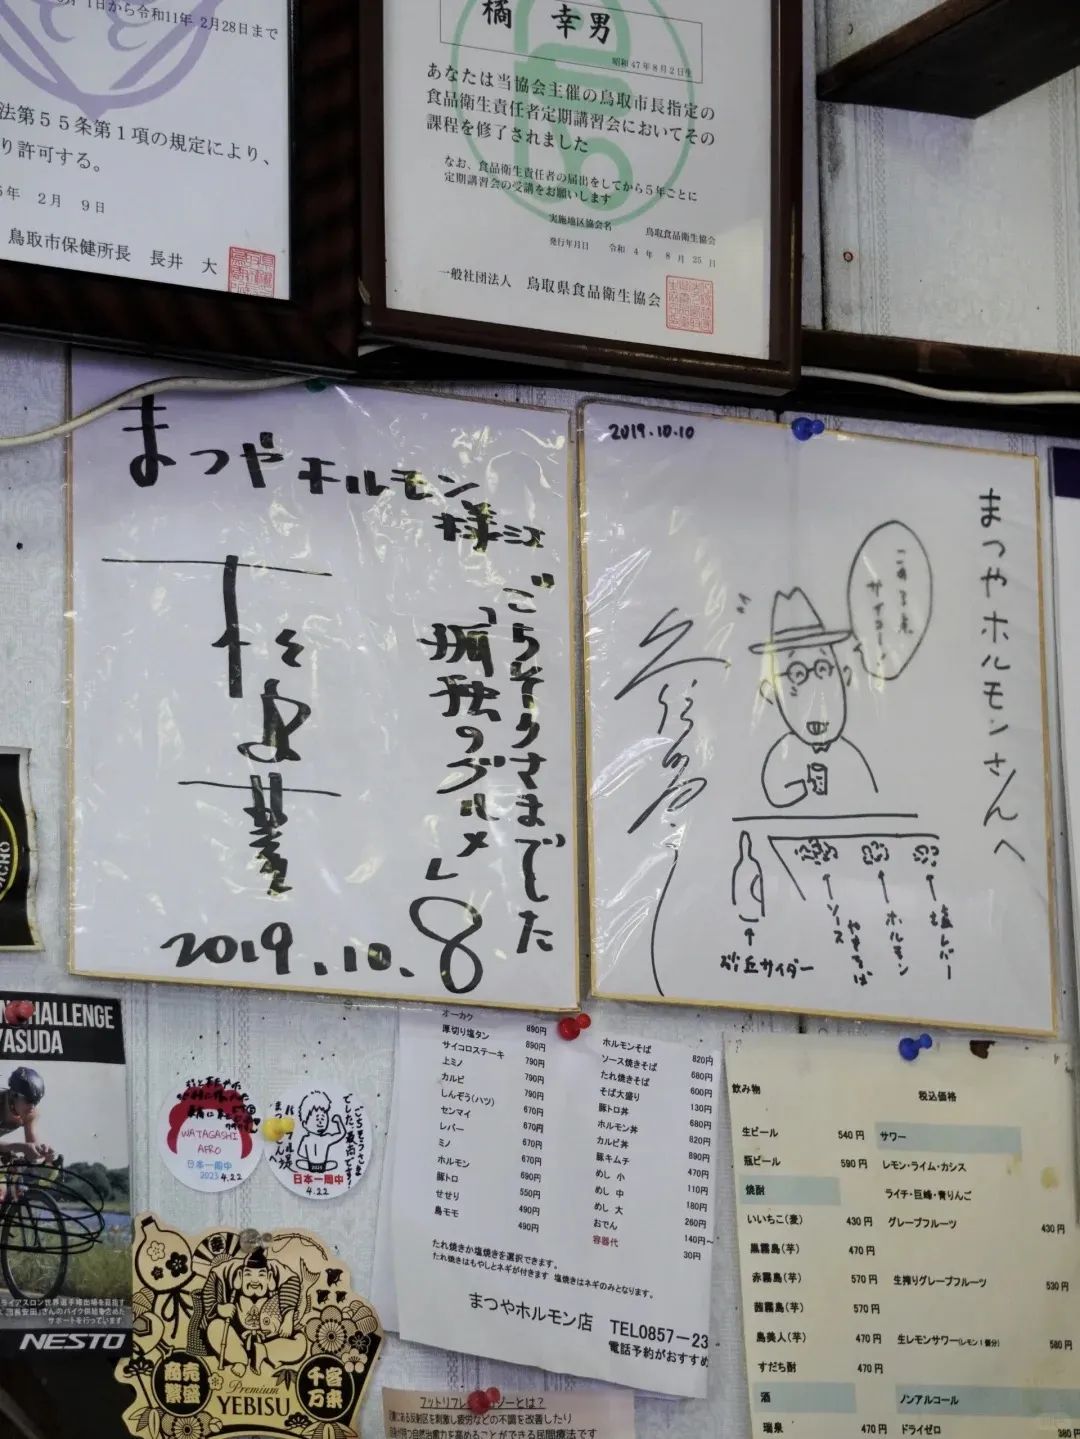 1日から令和11年 2月28日まで
法第55条第1項の規定により、
り許可する。
年 2月 9日
鳥取市保健所長 長井 大
橘 幸男
昭和47年8月2日生
あなたは当協会主催の鳥取市長指定の
食品衛生責任者定期講習会においてその
課程を修了されました
なお、食品衛生責任者の届出をしてから5年ごとに
定期講習会の受講をお願いします
実施地区協会名 鳥取食品衛生協会
発行年月日 令和 4 年 8 月 25 日
一般社団法人 鳥取県食品衛生協会
まつやホルモン
様江
ごちそうさまでした
「孤独のグルメ」8
2019.10.
2019.10.10
まつやホルモンさんへ
砂丘サイダー
ソース
やきそば
ホルモン
塩レバー
CHALLENGE
YASUDA
NESTO
WATAGASHI
AFRO
日本一周中
2023 4.22
ごちそうさま
でした。最高です!
まつやホルモン店
さんへ
日本一周中
4.22
商売
繁盛
千客
万来
Premium
YEBISU
オーカク 890円
厚切り塩タン 890円
サイコロステーキ 790円
上ミノ 790円
カルビ 790円
しんぞう(ハツ) 670円
センマイ 670円
レバー 670円
ミノ 670円
ホルモン 690円
豚トロ 550円
せせり 490円
鳥モモ 490円
ホルモンそば 820円
ソース焼きそば 680円
たれ焼きそば 600円
そば大盛り 130円
豚トロ丼 680円
ホルモン丼 820円
カルビ丼 890円
豚キムチ 470円
めし 小 110円
めし 中 180円
めし 大 260円
おでん 140円~
容器代 30円
たれ焼きか塩焼きを選択できます。
たれ焼きはもやしとネギが付きます 塩焼きはネギのみとなります。
まつやホルモン店 TEL0857-23
電話予約がおすすめ
飲み物 税込価格
生ビール 540円
瓶ビール 590円
焼酎
いいちこ(麦) 430円
黒霧島(芋) 470円
赤霧島(芋) 570円
茜霧島(芋) 570円
島美人(芋) 470円
すだち酎 470円
酒
瑞泉 470円
サワー
レモン・ライム・カシス
ライチ・巨峰・青りんご
グレープフルーツ 430円
生搾りグレープフルーツ 530円
生レモンサワー(レモン1個分) 580円
ノンアルコール
ドライゼロ 380円
ある反射区を刺激し疲労などの不調を改善したり
自然治癒力を高めることができる民間療法です